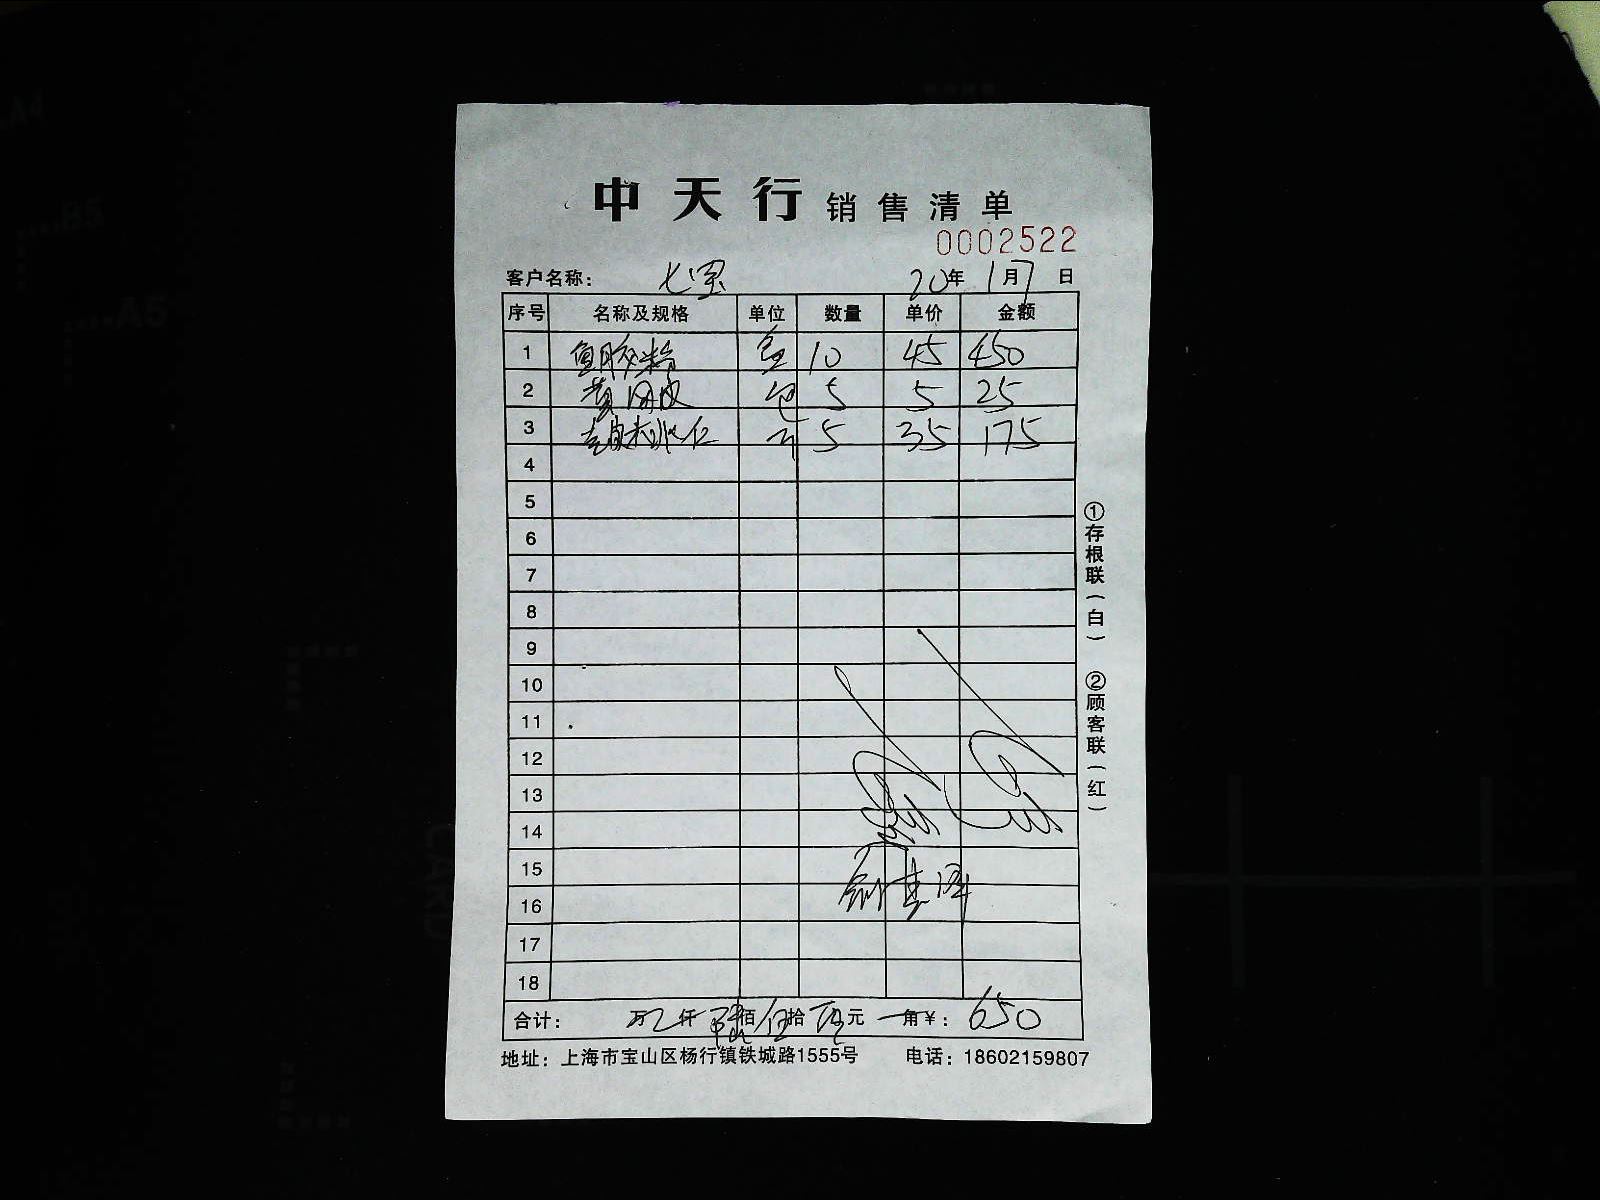 中天行销售清单
0002522
客户名称： 七宝 20年 1月7日
序号 名称及规格 单位 数量 单价 金额
1 鱼胶粉 包 10 45 450
2 黄 皮 包 5 5 25
3 仁 5 35 175
4
5
6
7
8
9
10
11
12
13
14
15
16
17
18
合计： 万 仟 陆佰伍拾 元 角￥： 650
地址：上海市宝山区杨行镇铁城路1555号 电话：18602159807
①存根联（白） ②顾客联（红）